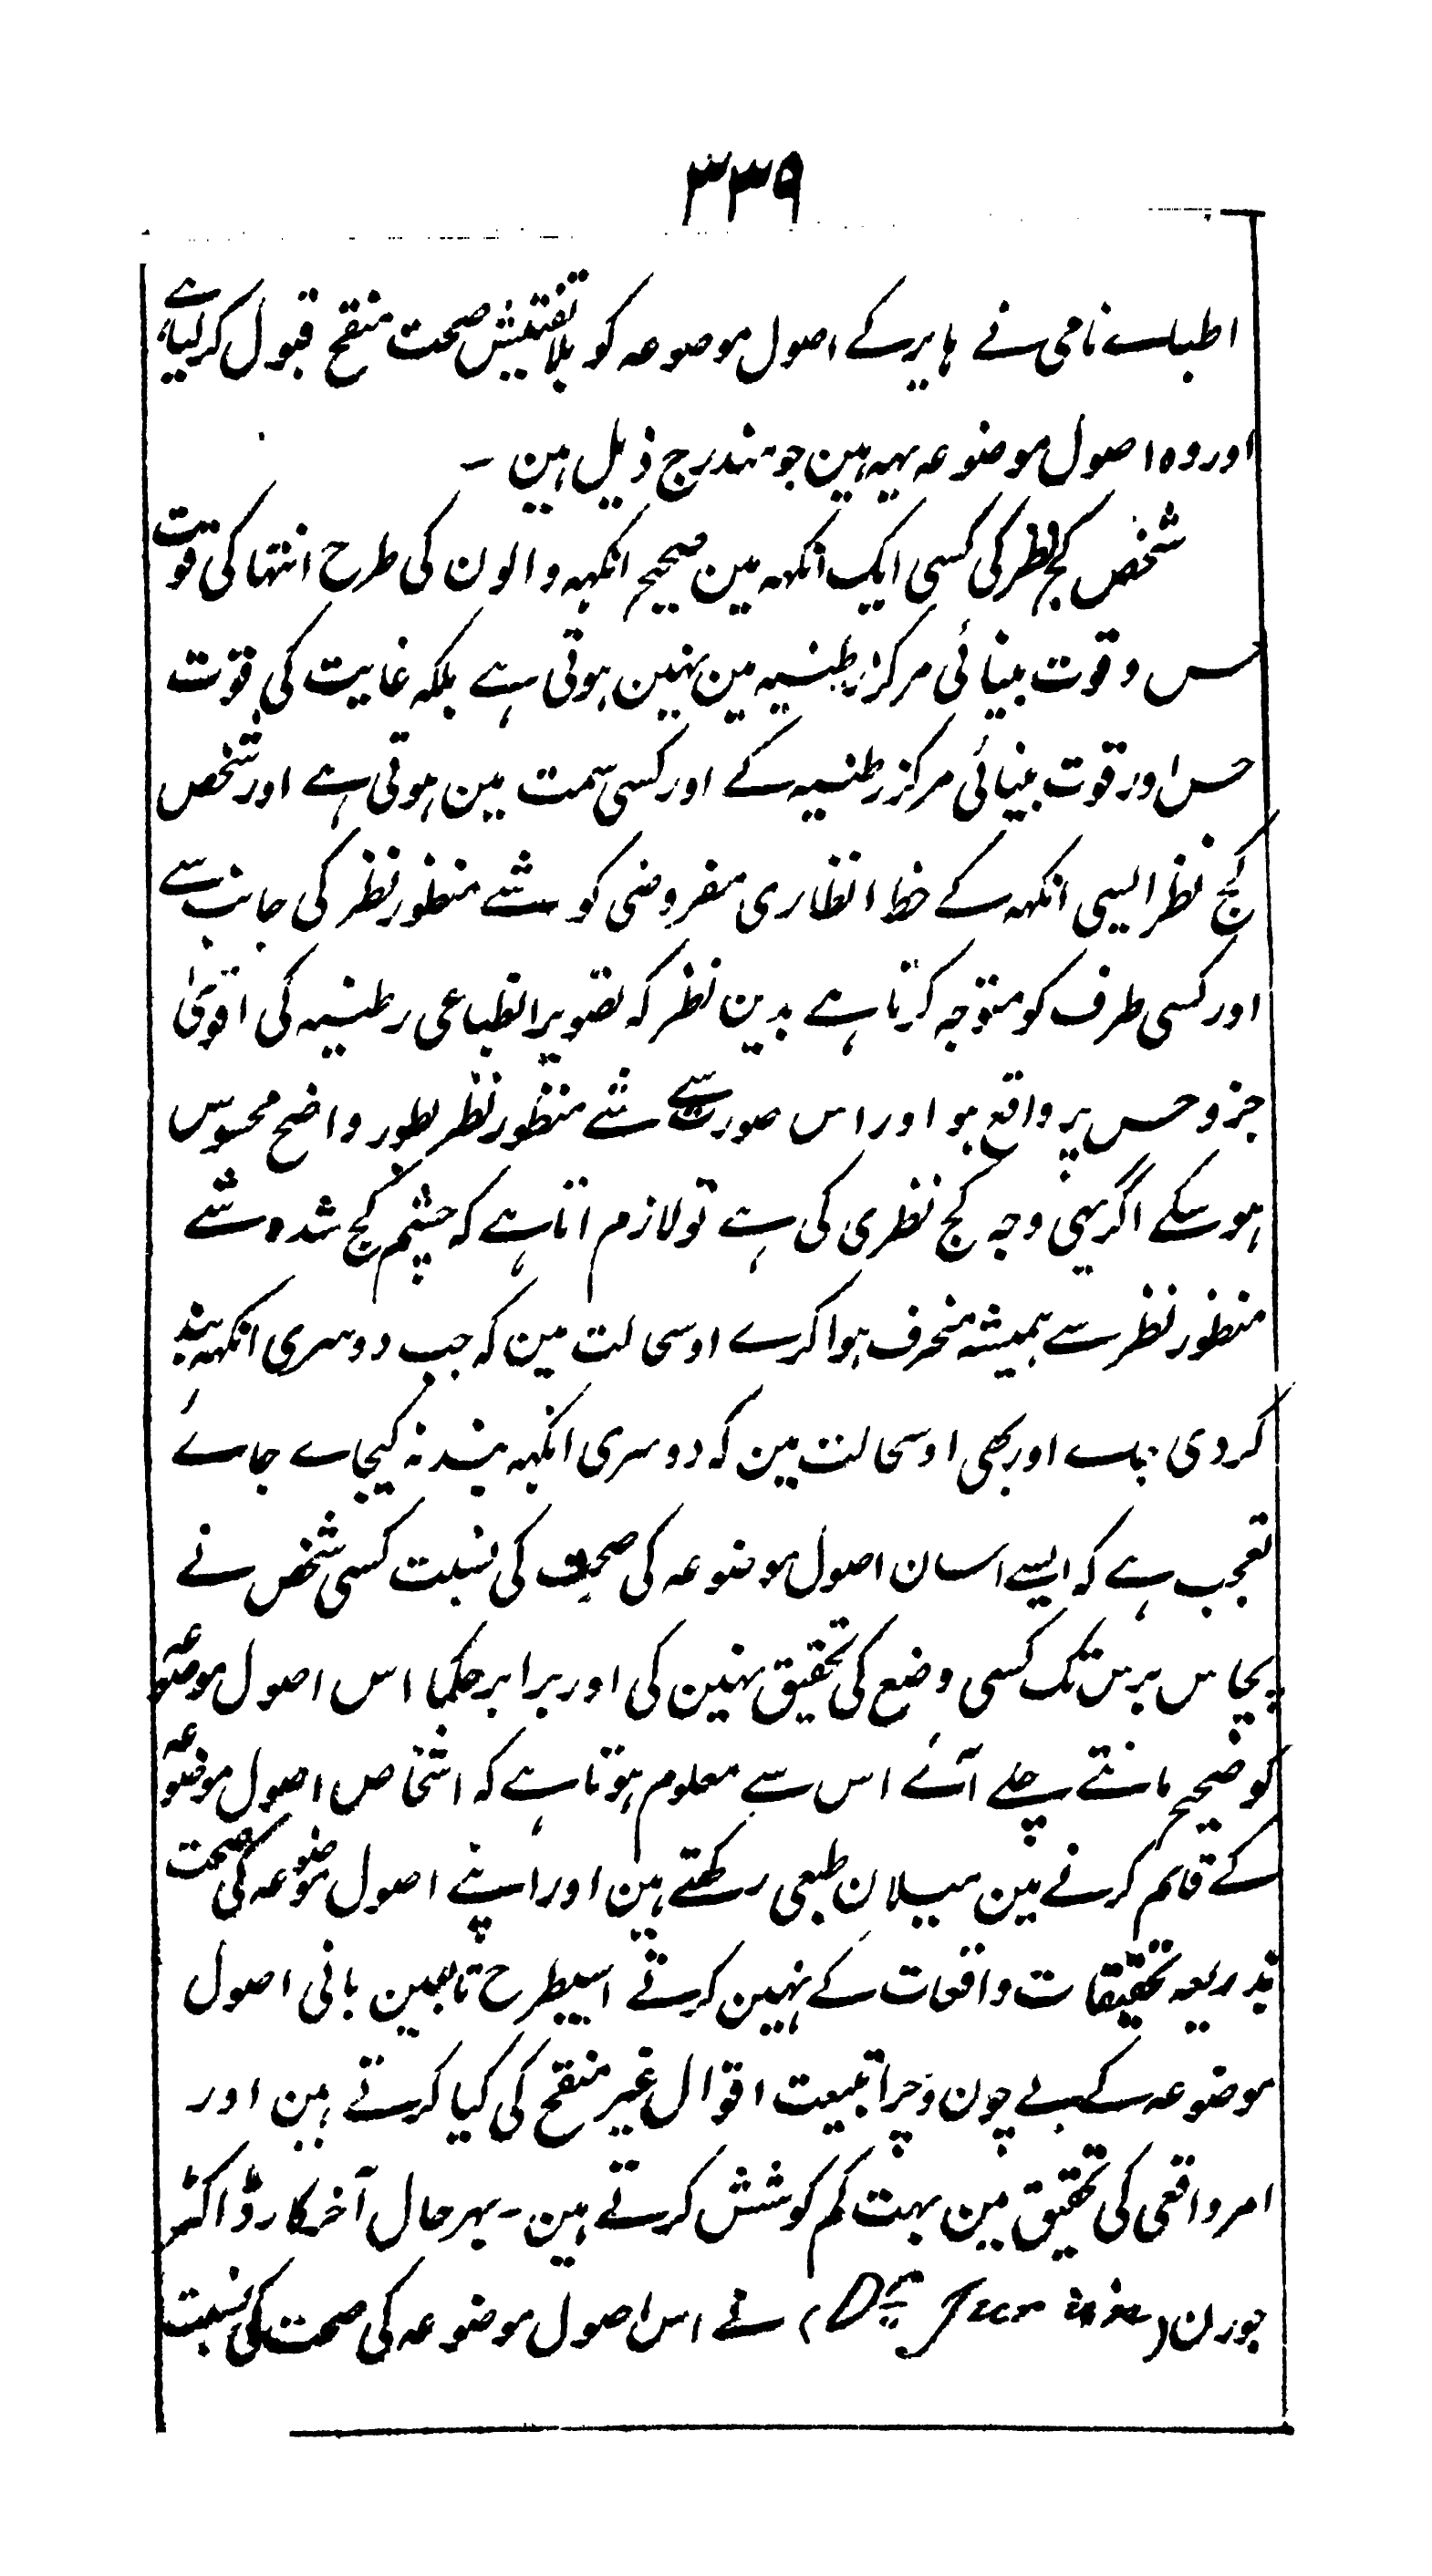 ۳۳۹
اطباے نامی نے ہایرکے اصول موصوعہ کو بلاتفتیش صحت منقح قبول کرلیاہے
اور وہ اصول موضوعہ یہہ ہین جو مندرج ذیل ہین ۔
شخص کج نظر کی کسی ایک انکہہ مین صحیح انکہہ والون کی طرح انتہا کی قوت
حس و قوت بینائی مرکز رطنیہ مین نہین ہوتی ہے بلکہ غایت کی قوت
حس اور قوت بینائی مرکز رطنیہ کے اور کسی سمت مین ہوتی ہے اور شخص
کج نظر ایسی انکہہ کے خط انظاری مفروضی کو شے منظور نظر کی جانب سے
اور کسی طرف کو متوجہ کرتا ہے بدین نظر کہ تصویر انطباعی رطنیہ کی اقویٰ
جزو حس پر واقع ہو اور اس صورت سے شے منظور نظر بطور واضح محسوس
ہوسکے اگر یہی وجہ کج نظری کی ہے تو لازم اتا ہے کہ چشم کج شدہ شے
منظور نظر سے ہمیشہ منحرف ہوا کرے اوسی حالت مین کہ جب دوسری انکہہ بند
کر دی جاے اور بھی اوسی حالت مین کہ دوسری انکہہ بند نہ کیجاے جاے
تعجب ہے کہ ایسے اسان اصول موضوعہ کی صحت کی نسبت کسی شخص نے
پچاس برس تک کسی وضع کی تحقیق نہین کی اور برابر حکما اس اصول موضوعہ
کو صحیح مانتے چلے آئے اس سے معلوم ہوتا ہے کہ اشخاص اصول موضوعہ
کے قائم کرنے مین میلان طبعی رکھتے ہین اور اپنے اصول موضوعہ کی صحت
بذریعہ تحقیقات واقعات کے نہین کرتے اسیطرح تابعین بانی اصول
موضوعہ کے بے چون و چرا تبعیت اقوال غیر منقح کی کیا کرتے ہین اور
امر واقعی کی تحقیق مین بہت کم کوشش کرتے ہین ۔ بہرحال آخرکار ڈاکٹر
جورن ( نے اس اصول موضوعہ کی صحت کی نسبت